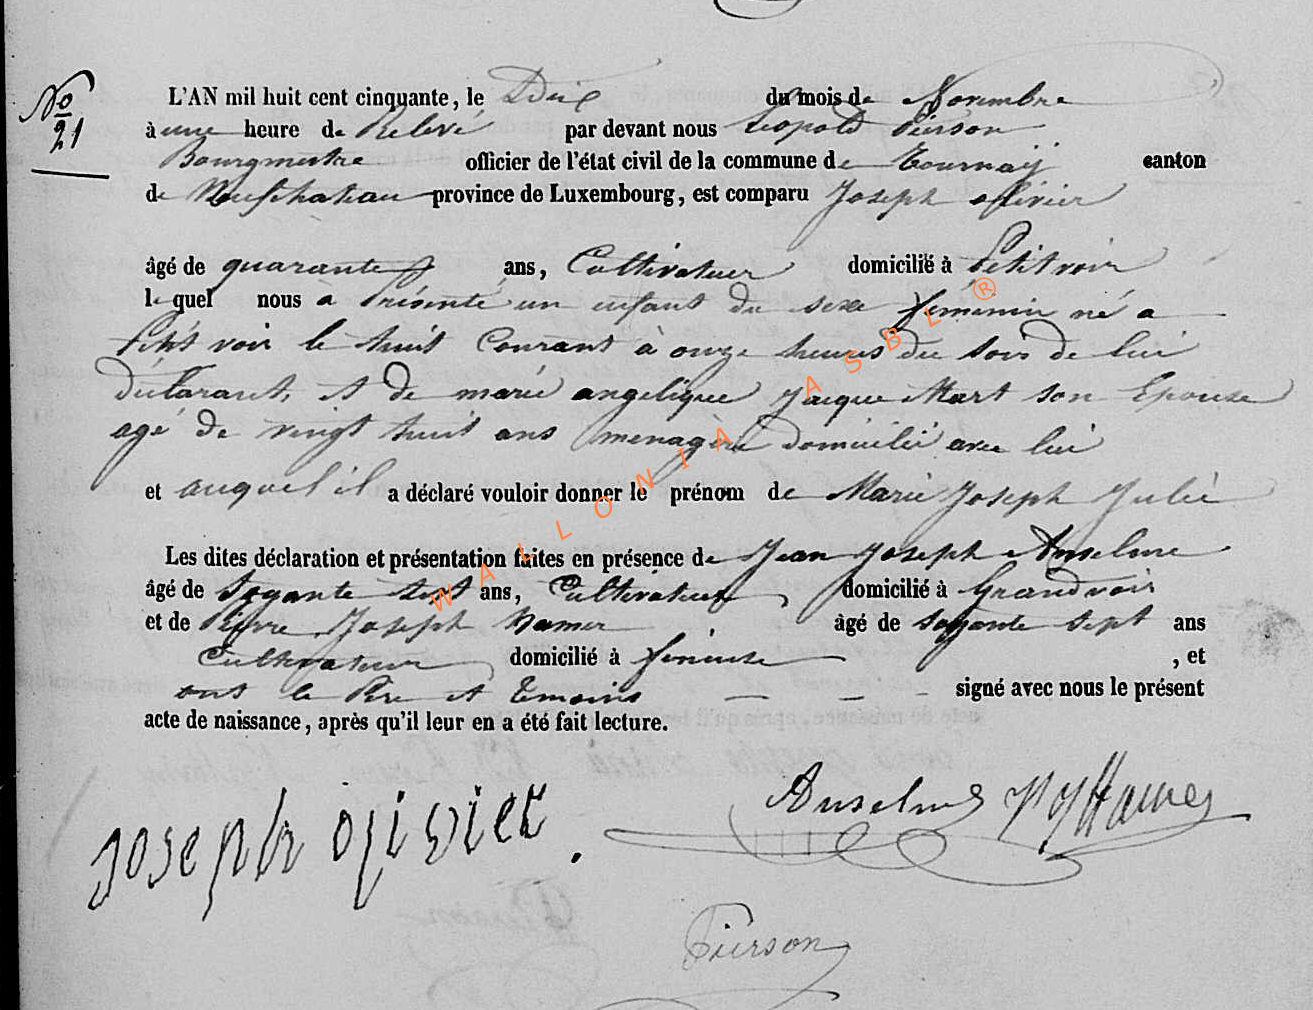 No 21
L'AN mil huit cent cinquante, le Dix du mois de Novembre
à une heure de Relevé par devant nous Léopold Pierson
Bourgmestre officier de l'état civil de la commune de Tournaÿ canton
de Neufchateau province de Luxembourg, est comparu Joseph olivier
âgé de quarante ans, Cultivateur domicilié à Petitvoir
le quel nous a Présenté un enfant du sexe féminin né a
Petit voir le huit Courant à onze heures du soir de lui
déclarant, et de marie angelique Jacque Mart son Epouse
agé de vingt huit ans menagère domicilié avec lui
et auquel il a déclaré vouloir donner le prénom de Marie Joseph Julie
Les dites déclaration et présentation faites en présence de Jean Joseph Anselme
âgé de Soyante sept ans, Cultivateur domicilié à Grandvoir
et de Pierre Joseph âgé de soyante sept ans
Cultivateur domicilié à , et
ont le Père et Temoins signé avec nous le présent
acte de naissance, après qu'il leur en a été fait lecture.
Joseph olivier. Anselme
Pierson
WALLONIA ASBL ®